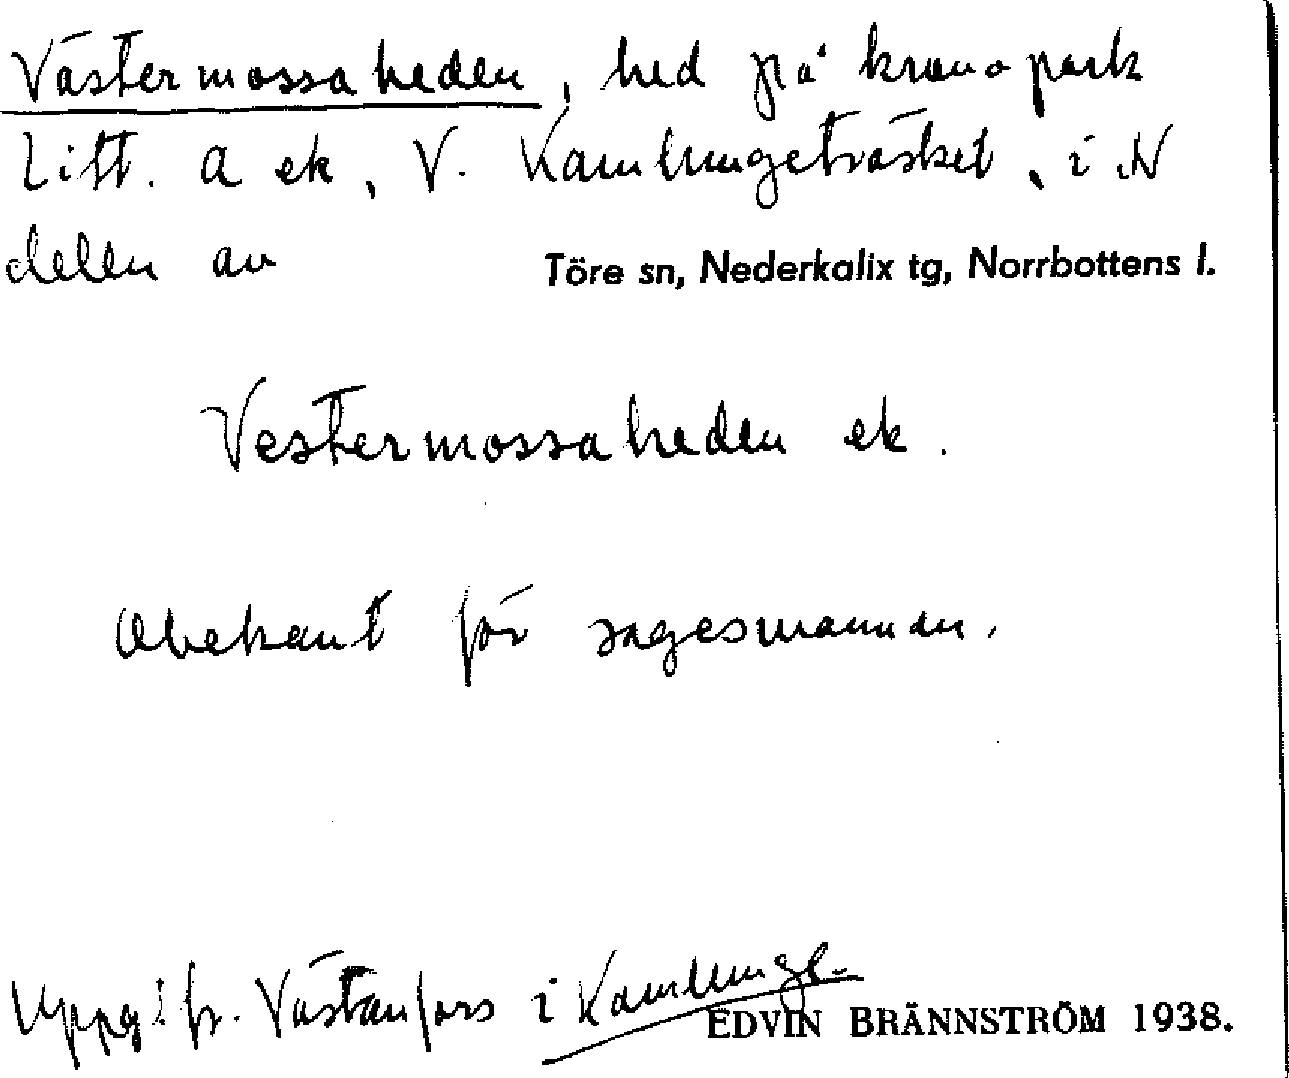 Västermossaheden, hed på kronopark
Litt. a ek, V. Kamlungeträsket, i N
delen av Töre sn, Nederkalix tg, Norrbottens l.
Vestermossaheden ek.
Obekant för sagesmannen.
Uppg: fr. Västanfors i Kamlunge
EDVIN BRÄNNSTRÖM 1938.